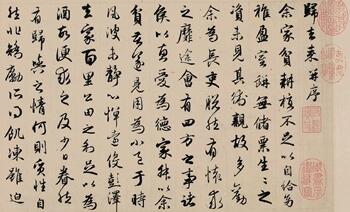 歸去來并序
余家貧耕植不足以自給幼
稚盈室缾無儲粟生生之
資未見其術親故多勸
余為長吏脫然有懷求
之靡途會有四方之事諸
侯以惠愛為德家叔以余
貧苦遂見用為小邑于時
風波未靜心憚遠役彭澤
去家百里公田之利足以為
酒故便求之及少日眷然
有歸歟之情何則質性自
然非矯勵所得飢凍雖迫